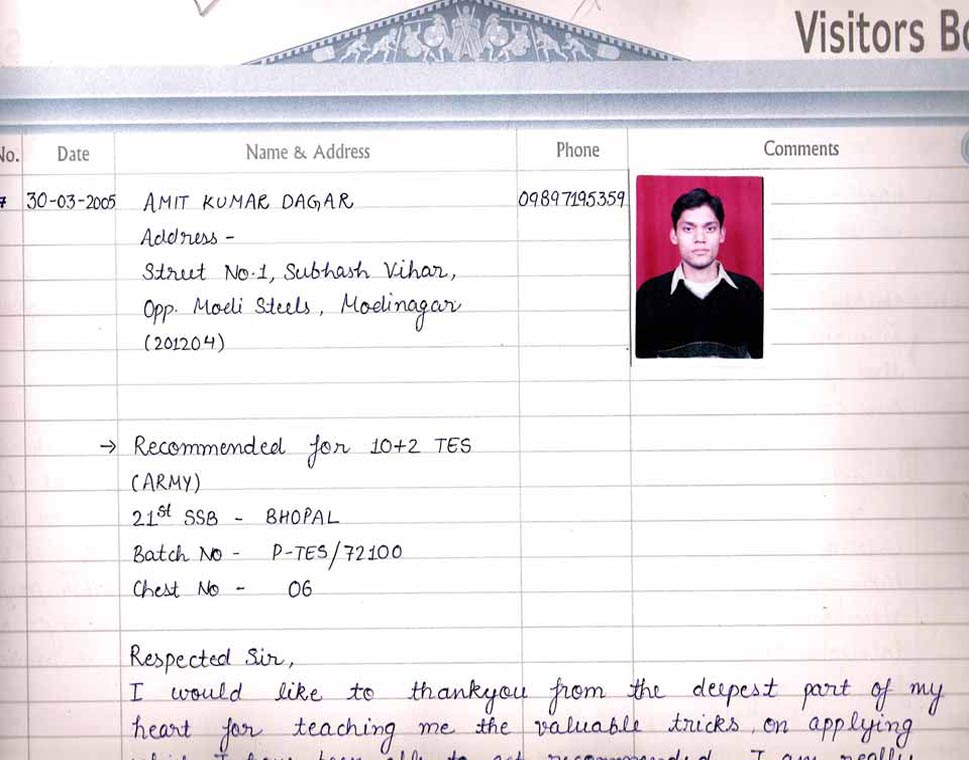 Visitors
No. Date Name & Address Phone Comments
7 30-03-2005 AMIT KUMAR DAGAR 09897195359
Address -
Street No.1, Subhash Vihar,
Opp. Modi Steels, Modinagar
(201204)
→ Recommended for 10+2 TES
(ARMY)
21st SSB - BHOPAL
Batch No - P-TES/72100
Chest No - 06
Respected Sir,
I would like to thankyou from the deepest part of my
heart for teaching me the valuable tricks, on applying
which I have been able to get recommended. I am really